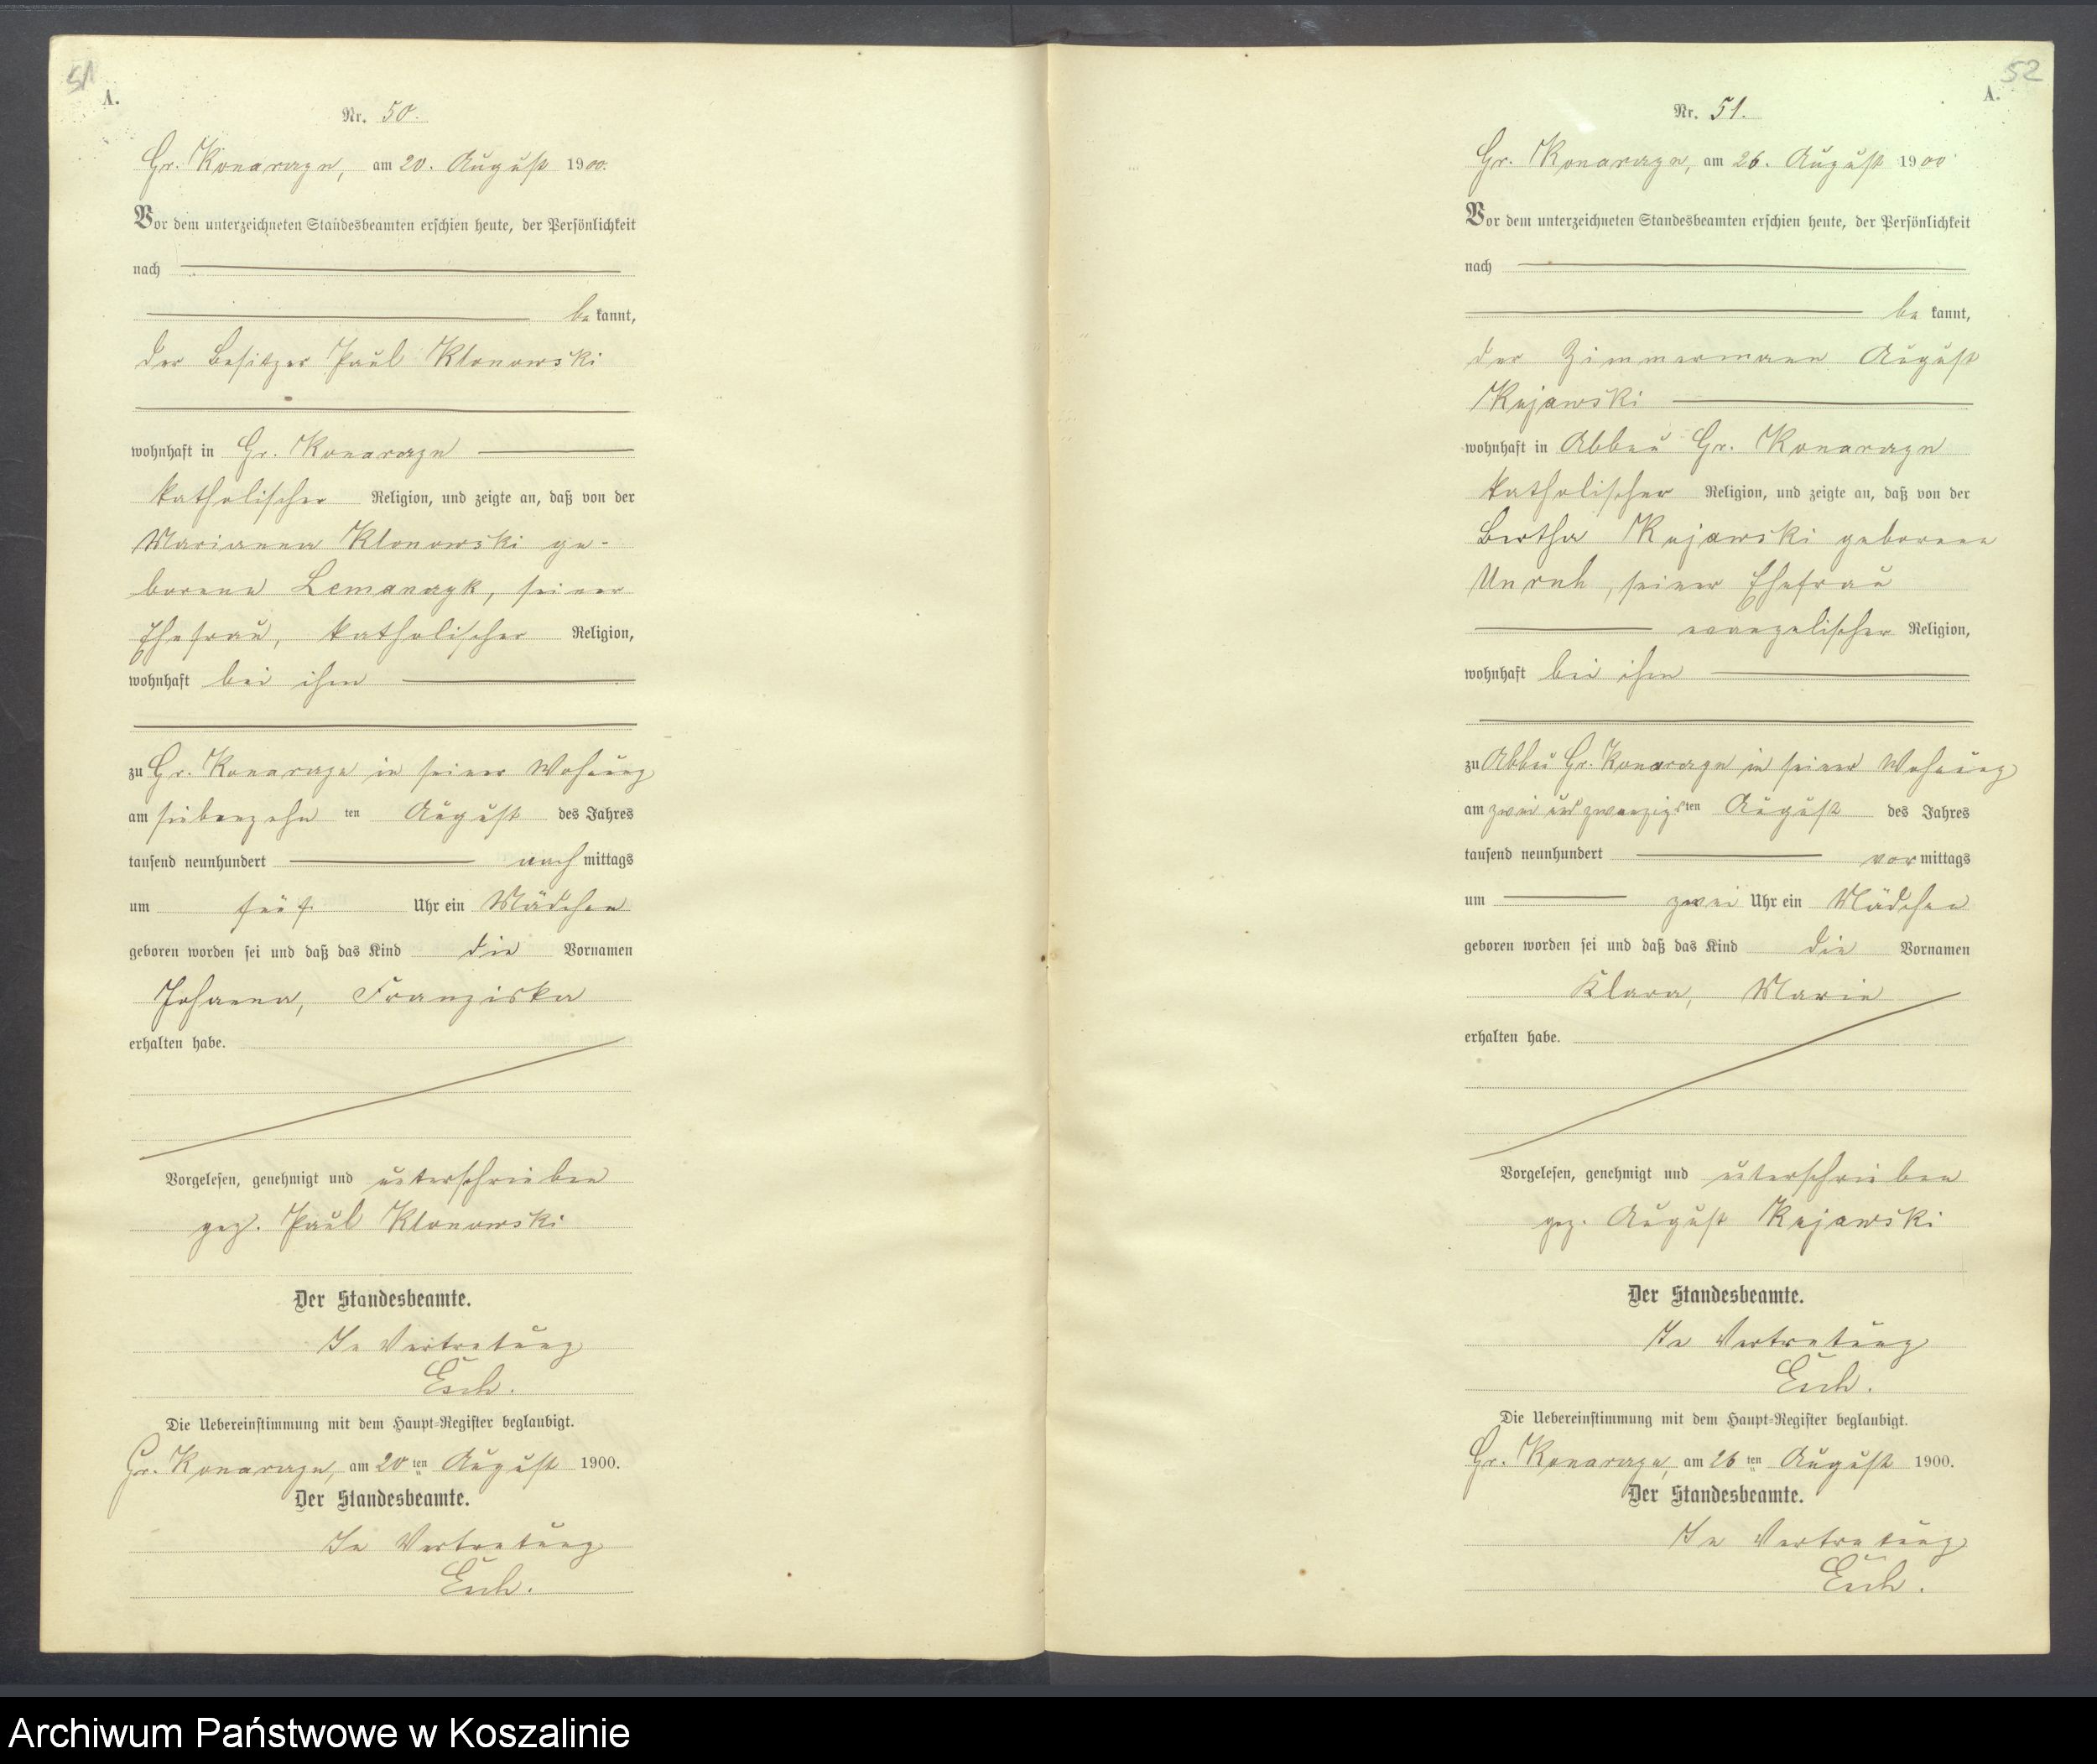 51
A.
Nr. 50.
Gr. Konarczyn, am 20. August 1900.
Vor dem unterzeichneten Standesbeamten erschien heute, der Persönlichkeit
nach
be kannt,
der Besitzer Paul Klonowski
wohnhaft in Gr. Konarczyn
katholischer Religion, und zeigte an, daß von der
Marianna Klonowski ge-
borene Lemanczyk, seiner
Ehefrau, katholischer Religion,
wohnhaft bei ihm
zu Gr. Konarczyn in seiner Wohnung
am siebenzehn ten August des Jahres
tausend neunhundert nach mittags
um fünf Uhr ein Mädchen
geboren worden sei und daß das Kind die Vornamen
Johanna, Franziska
erhalten habe.
Vorgelesen, genehmigt und unterschrieben
gez. Paul Klonowski
Der Standesbeamte.
In Vertretung
Esch.
Die Uebereinstimmung mit dem Haupt-Register beglaubigt.
Gr. Konarczyn, am 20 ten August 1900.
Der Standesbeamte.
In Vertretung
Esch.
52
A.
Nr. 51.
Gr. Konarczyn, am 26. August 1900
Vor dem unterzeichneten Standesbeamten erschien heute, der Persönlichkeit
nach
be kannt,
der Zimmermann August
Kujawski
wohnhaft in Abbau Gr. Konarczyn
katholischer Religion, und zeigte an, daß von der
Bertha Kujawski geborene
Unruh, seiner Ehefrau
evangelischer Religion,
wohnhaft bei ihm
zu Abbau Gr. Konarczyn in seiner Wohnung
am zwei und zwanzigsten August des Jahres
tausend neunhundert vor mittags
um zwei Uhr ein Mädchen
geboren worden sei und daß das Kind die Vornamen
Klara, Marie
erhalten habe.
Vorgelesen, genehmigt und unterschrieben
gez. August Kujawski
Der Standesbeamte.
In Vertretung
Esch.
Die Uebereinstimmung mit dem Haupt-Register beglaubigt.
Gr. Konarczyn, am 26 ten August 1900.
Der Standesbeamte.
In Vertretung
Esch.
Archiwum Państwowe w Koszalinie